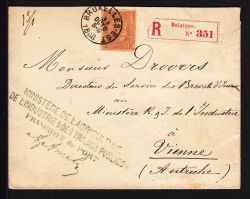 BRUXELLES-EST
Belgique.
R
N° 351
Monsieur Droovers
Directeur du Service des Brevets d'Invention
au
Ministère R. J. de l'Industrie
à
Vienne
(Autriche)
MINISTÈRE DE L'AGRICULTURE
DE L'INDUSTRIE & DES TRAVAUX PUBLICS
FRANCHISE DE PORT